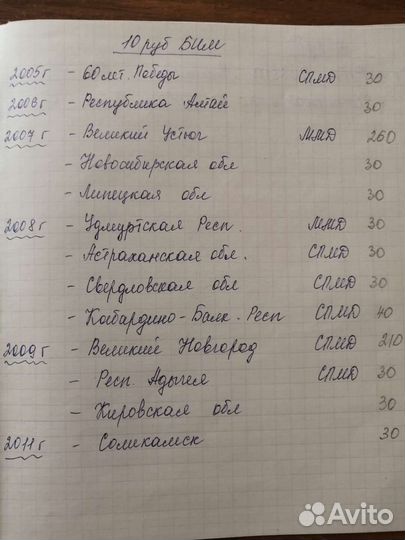 10 руб БИМ
2005г - 60 лет. Победы СПМД 30
2006г - Республика Алтай 30
2007г - Великий Устюг ММД 260
- Новосибирская обл 30
- Липецкая обл 30
2008г - Удмуртская Респ. ММД 30
- Астраханская обл. СПМД 30
- Свердловская обл СПМД 30
- Кабардино-Балк. Респ СПМД 40
2009г - Великий Новгород СПМД 210
- Респ. Адыгея СПМД 30
- Кировская обл 30
2011г - Соликамск 30
Avito